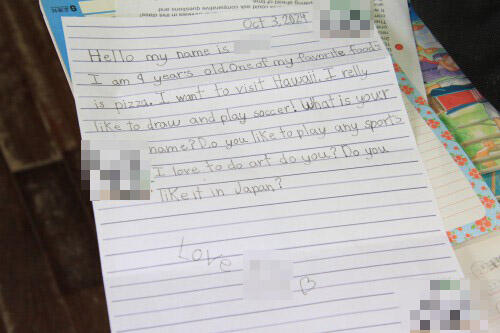 Oct 3, 2024
Hello my name is
I am 9 years old. One of my favorite foods
is pizza. I want to visit Hawaii. I relly
like to draw and play soccer! What is your
name? Do you like to play any sports
I love to do art do you? Do you
like it in Japan?
Love